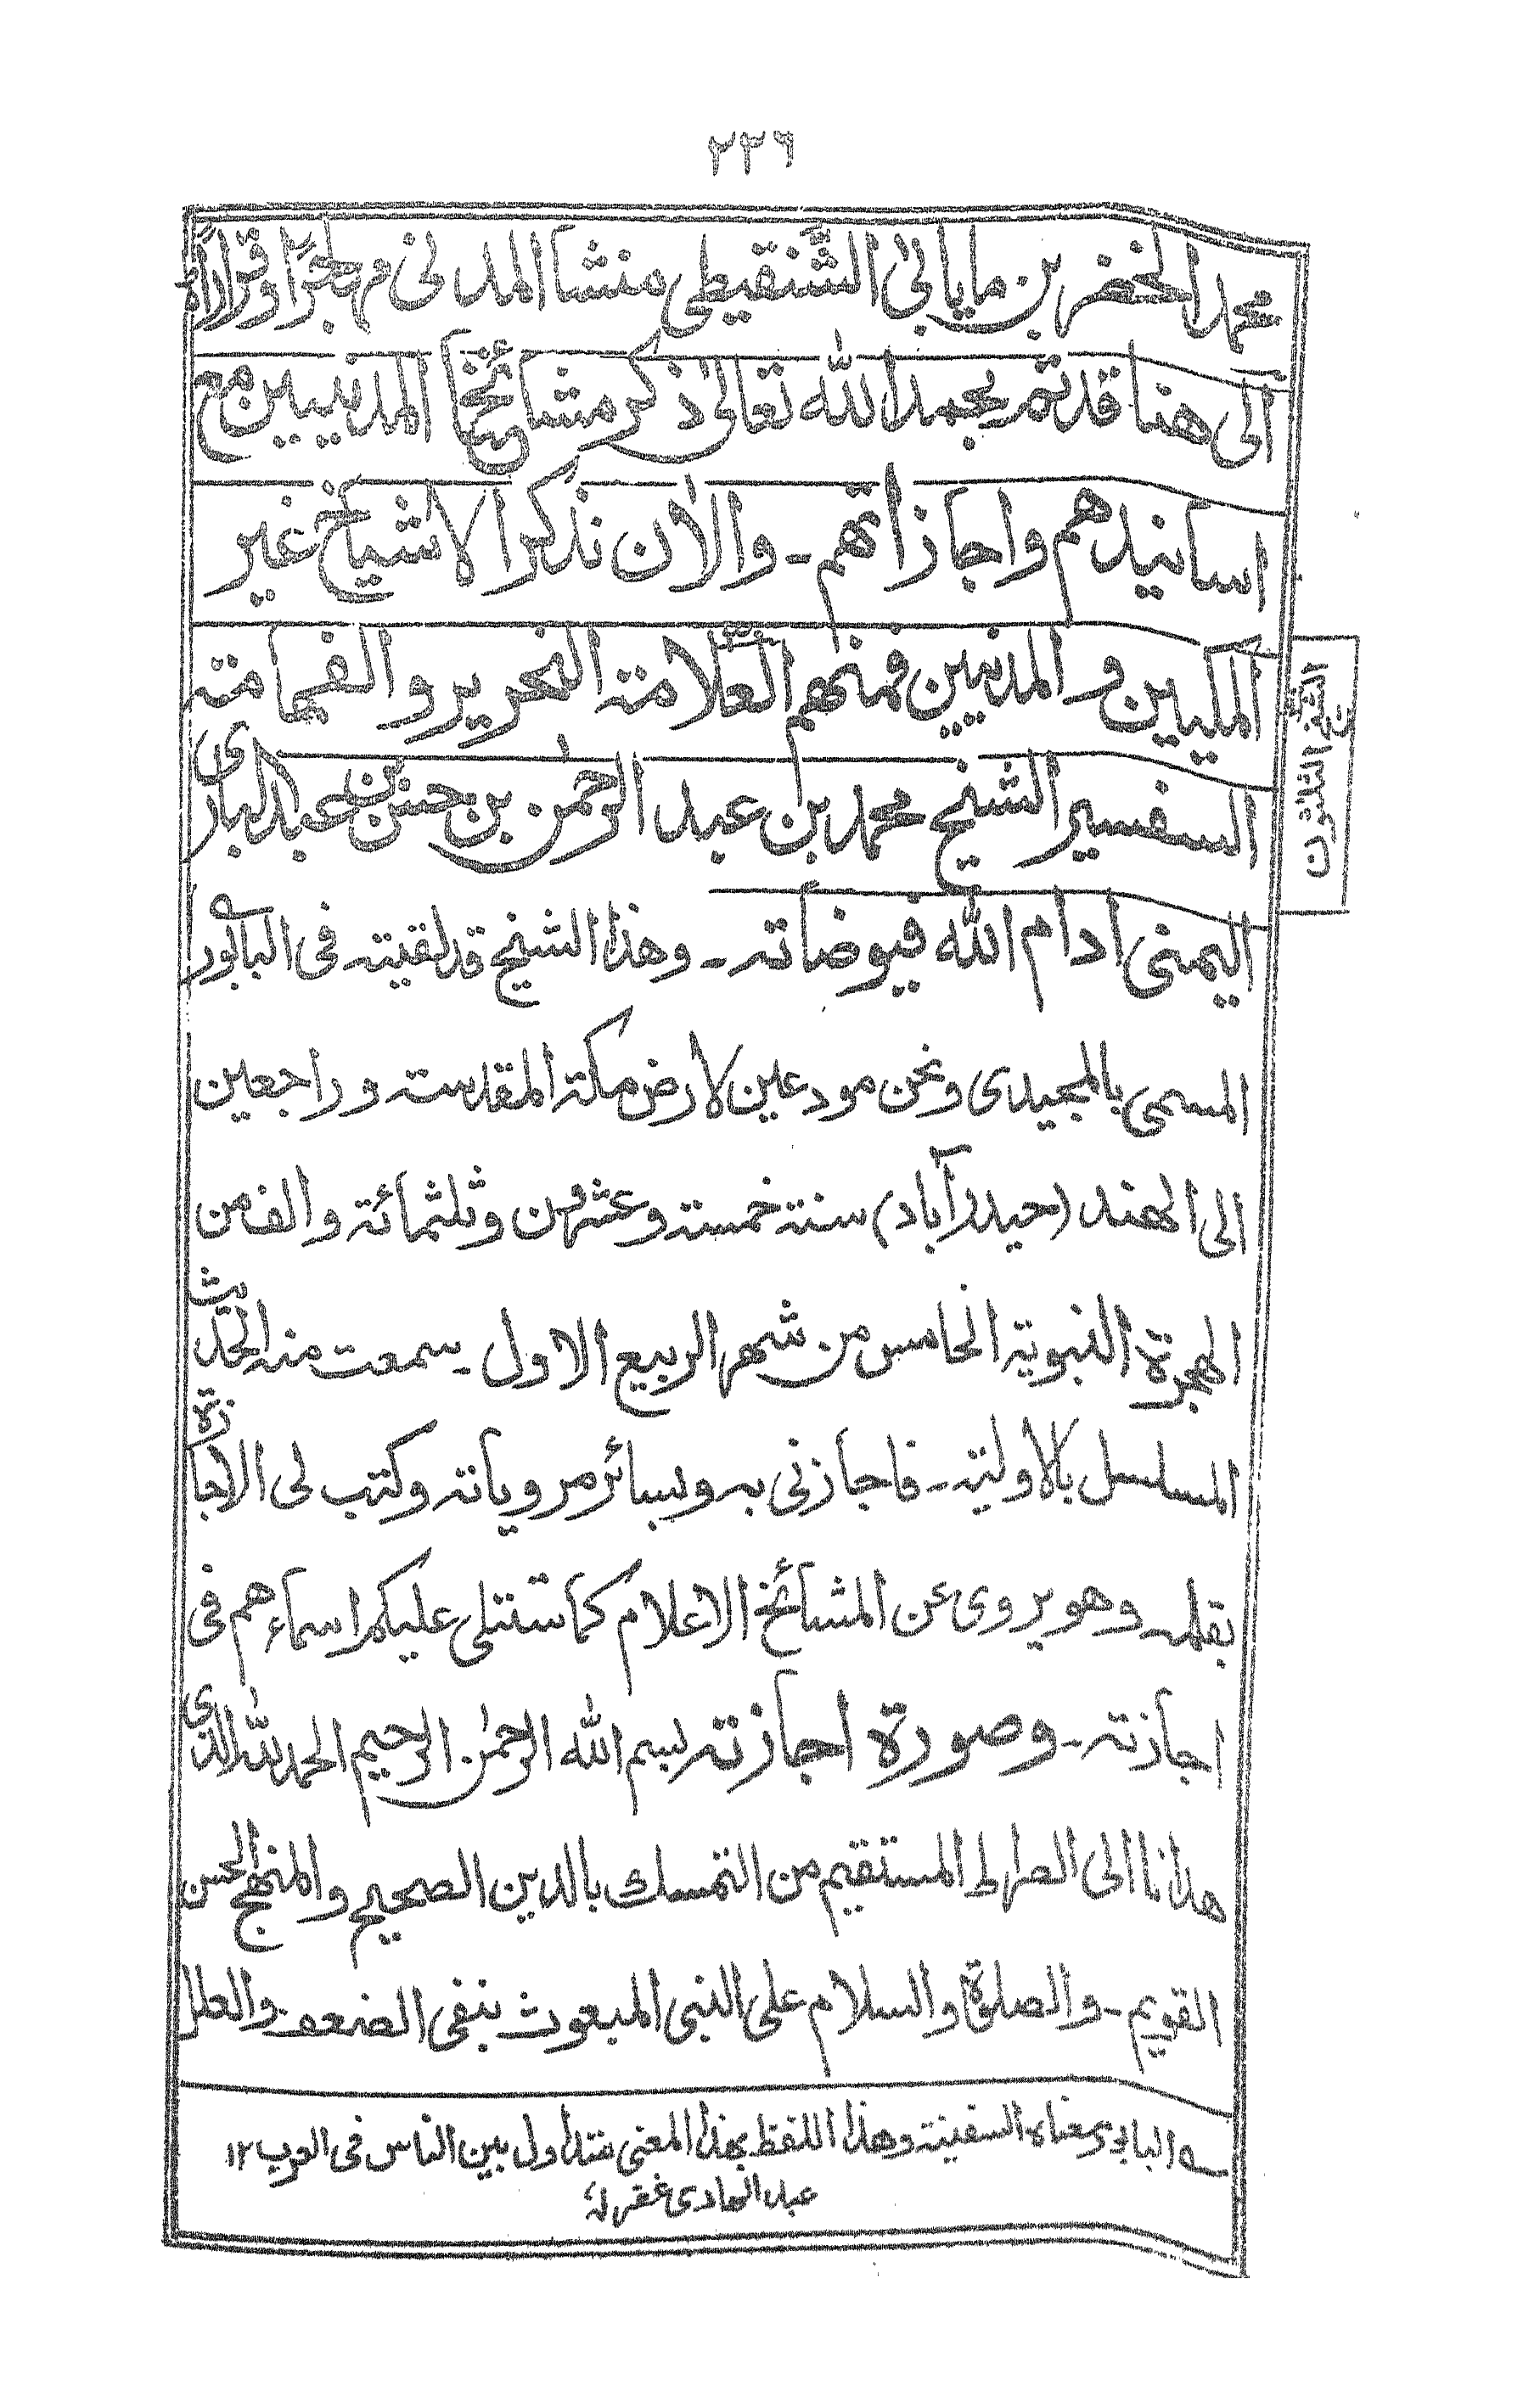 ٢٣٦
محمد الخضر بن مایابٰی الشنقیطی منشأ المدنی مهاجرًا وقرارًا
الی هنا قد تم بحمد الله تعالیٰ ذکر مشائخی المدنیین مع
اسانیدهم واجازاتهم ـ والاٰن نذکر الاشیاخ غیر
المکیین والمدنیین فمنهم العلامة النحریر والفهامة
السفسیر الشیخ محمد بن عبد الرحمٰن بن حسن بن عبد الباری
الشیخ الثلثون
الیمنی ادام الله فیوضاته ـ وهذا الشیخ قد لقیته فی البابور
المسمی بالمجیدی ونحن مودعین لارض مکة المقدسة وراجعین
الی الهند (حیدرآباد) سنة خمسة وعشرین وثلثمائة والف من
الهجرة النبویة الخامس من شهر الربیع الاول ـ سمعت منه الحدیث
المسلسل بالاولیة ـ فاجازنی به وبسائر مرویاته وکتب لی الاجازة
بقلمه وهو یروی عن المشائخ الاعلام کما ستتلی علیکم اسماءهم فی
اجازته ـ وصورة اجازته بسم الله الرحمٰن الرحیم الحمد لله الذی
هدانا الی الصراط المستقیم من التمسك بالدین الصحیح والمنهج الحسن
القویم ـ والصلوة والسلام علی النبی المبعوث بنفی الضعف والعلل
معناه السفینة وهذا اللفظ بهذا المعنی متداول بین الناس فی العرب ١٢
عبد الهادی غفر له